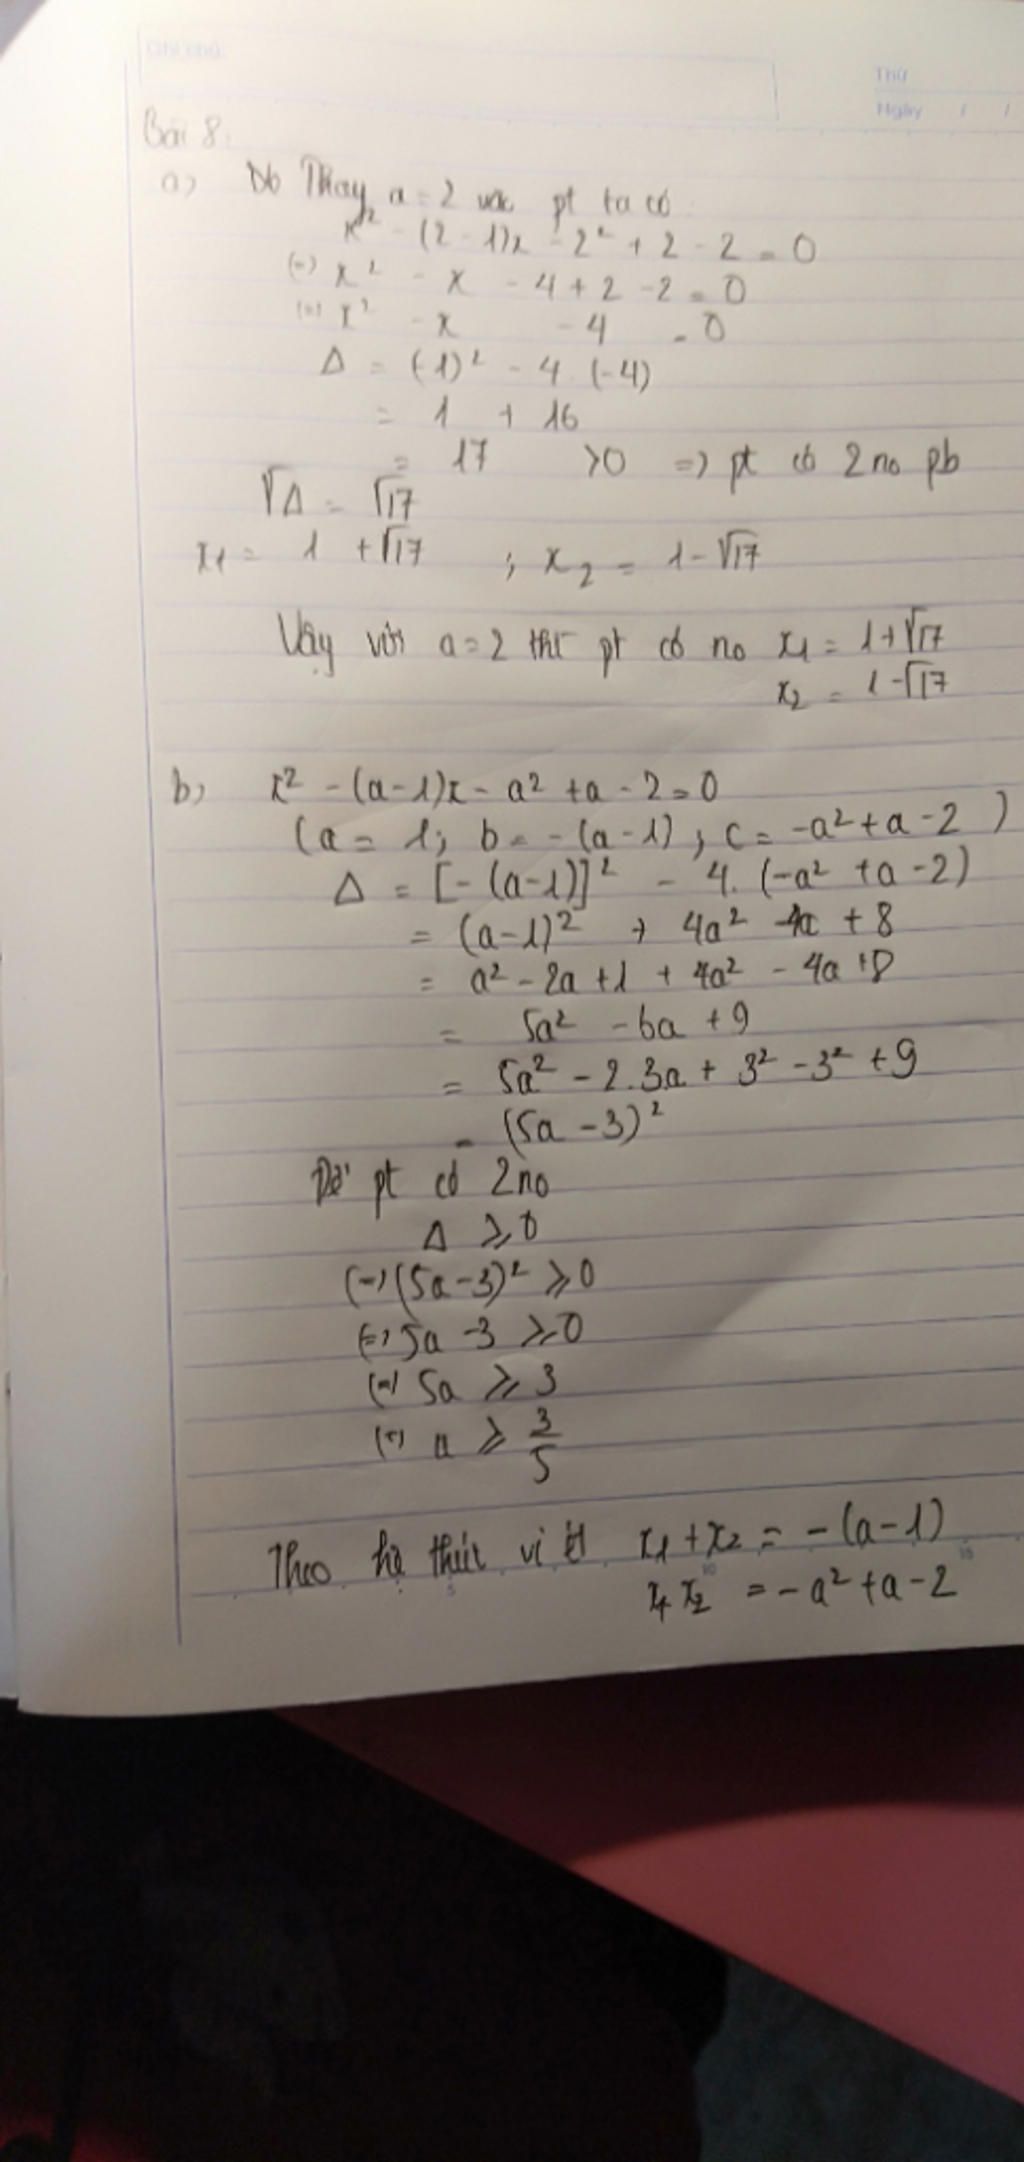 Ghi chú:
Thứ
Ngày / /
Bài 8.
a) Thay a = 2 vào pt ta có
x² - (2 - 1)x - 2² + 2 - 2 = 0
(=) x² - x - 4 + 2 - 2 = 0
(=) x² - x - 4 = 0
Δ = (-1)² - 4.(-4)
= 1 + 16
= 17 >0 => pt có 2 no pb
√Δ = √17
x1 = 1 + √17 ; x2 = 1 - √17
Vậy với a = 2 thì pt có no x1 = 1 + √17
x2 = 1 - √17
b) x² - (a-1)x - a² + a - 2 = 0
(a = 1; b = -(a-1); c = -a² + a - 2)
Δ = [-(a-1)]² - 4.(-a² + a - 2)
= (a-1)² + 4a² - 4a + 8
= a² - 2a + 1 + 4a² - 4a + 8
= 5a² - 6a + 9
= 5a² - 2.3a + 3² - 3² + 9
= (5a - 3)²
Để pt có 2 no
Δ ≥ 0
(=) (5a - 3)² ≥ 0
(=) 5a - 3 ≥ 0
(=) 5a ≥ 3
(=) a ≥ 3/5
Theo hệ thức vi ét x1 + x2 = -(a-1)
x1 x2 = -a² + a - 2